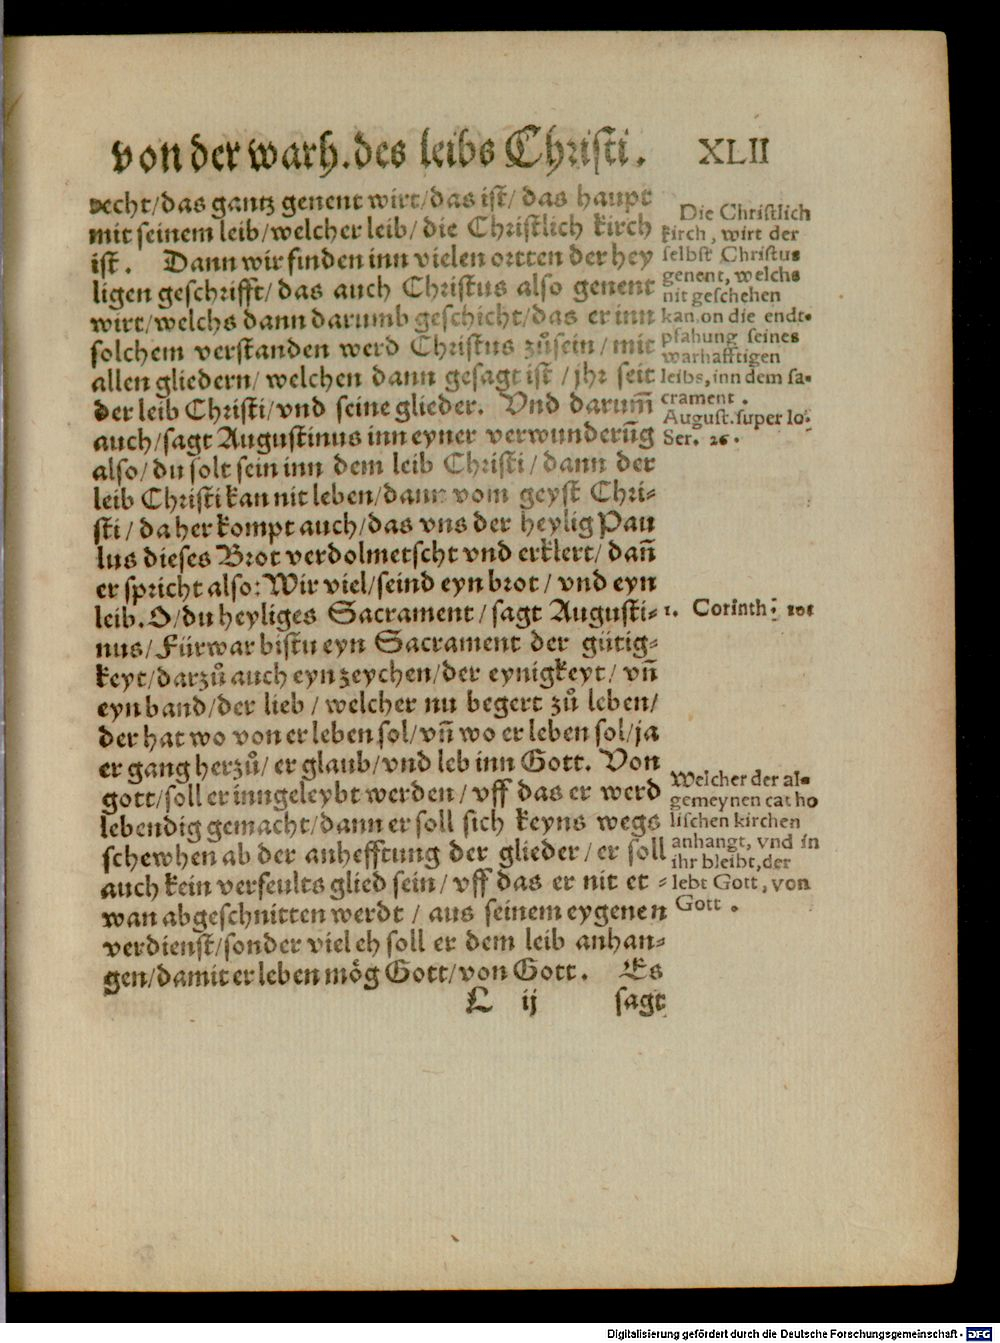 von der warh. des leibs Christi. XLII
recht/das gantz genent wirt/das ist/das haupt
mit seinem leib/welcher leib/die Christlich kirch
ist. Dann wir finden inn vielen ortten der hey
ligen geschrifft/das auch Christus also genent
wirt/welchs dann darumb geschicht/das er inn
solchem verstanden werd Christus zůsein/mit
allen gliedern/welchen dann gesagt ist/jhr seit
der leib Christi/vnd seine glieder. Vnd darum̃
auch/sagt Augustinus inn eyner verwunderũg
also/du solt sein inn dem leib Christi/dann der
leib Christi kan nit leben/dann vom geyst Chri-
sti/daher kompt auch/das vns der heylig Pau
lus dieses Brot verdolmetscht vnd erklert/dañ
er spricht also: Wir viel/seind eyn brot/vnd eyn
leib. O/du heyliges Sacrament/sagt Augusti-
nus/Fürwar bistu eyn Sacrament der gütig-
keyt/darzů auch eyn zeychen/der eynigkeyt/vñ
eyn band/der lieb/welcher nu begert zů leben/
der hat wo von er leben sol/vñ wo er leben sol/ja
er gang herzů/er glaub/vnd leb inn Gott. Von
gott/soll er inngeleybt werden/vff das er werd
lebendig gemacht/dann er soll sich keyns wegs
schewhen ab der anhefftung der glieder/er soll
auch kein verfeults glied sein/vff das er nit et-
wan abgeschnitten werdt/aus seinem eygenen
verdienst/sonder viel eh soll er dem leib anhan-
gen/damit er leben mög Gott/von Gott. Es
L ij sagt
Die Christlich
kirch, wirt der
selbst Christus
genent, welchs
nit geschehen
kan, on die endt-
pfahung seines
warhafftigen
leibs, inn dem sa-
crament.
August. super Io:
Ser. 26.
1. Corinth: 10
Welcher der al-
gemeynen catho
lischen kirchen
anhangt, vnd in
ihr bleibt, der
lebt Gott, von
Gott.
Digitalisierung gefördert durch die Deutsche Forschungsgemeinschaft - DFG